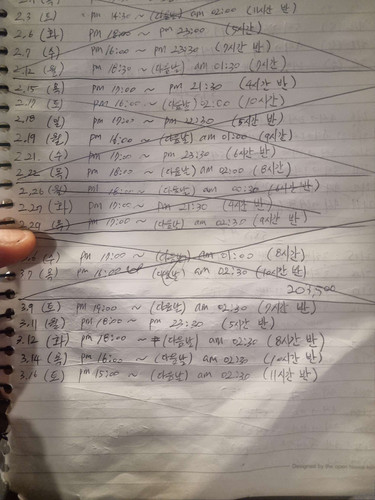 2.3 (토) pm 14:30 ~ (다음날) am 02:00 (11시간 반)
2.6 (화) pm 18:00 ~ pm 23:00 (5시간)
2.7 (수) pm 16:00 ~ pm 23:30 (7시간 반)
2.12 (월) pm 18:30 ~ (다음날) am 01:30 (7시간)
2.15 (목) pm 17:00 ~ pm 21:30 (4시간 반)
2.17 (토) pm 16:00 ~ (다음날) 02:00 (10시간)
2.18 (일) pm ~ pm (5시간 반)
2.19 (월) pm 16:00 ~ (다음날) am 01:00 (9시간)
2.21 (수) pm 17:00 ~ pm 23:30 (6시간 반)
2.22 (목) pm 18:00 ~ (다음날) am 02:00 (8시간)
2.26 (월) 18:00 ~ (다음날) am 00:30 (6시간 반)
2.27 (화) pm 17:00 ~ pm 21:30 (4시간 반)
2.29 (목) pm 17:00 ~ (다음날) am 02:30 (9시간 반)
(수) pm 17:00 ~ (다음날) am 01:00 (8시간)
3.7 (목) pm 16:00 ~ (다음날) am 02:30 (10시간 반)
203,500
3.9 (토) pm 19:00 ~ (다음날) am 02:30 (7시간 반)
3.11 (월) pm 18:00 ~ pm 23:00 (5시간)
3.12 (화) pm 18:00 ~ (다음날) am 02:30 (8시간 반)
3.14 (목) pm 16:00 ~ (다음날) am 02:30 (10시간 반)
3.16 (토) pm 15:00 ~ (다음날) am 02:30 (11시간 반)